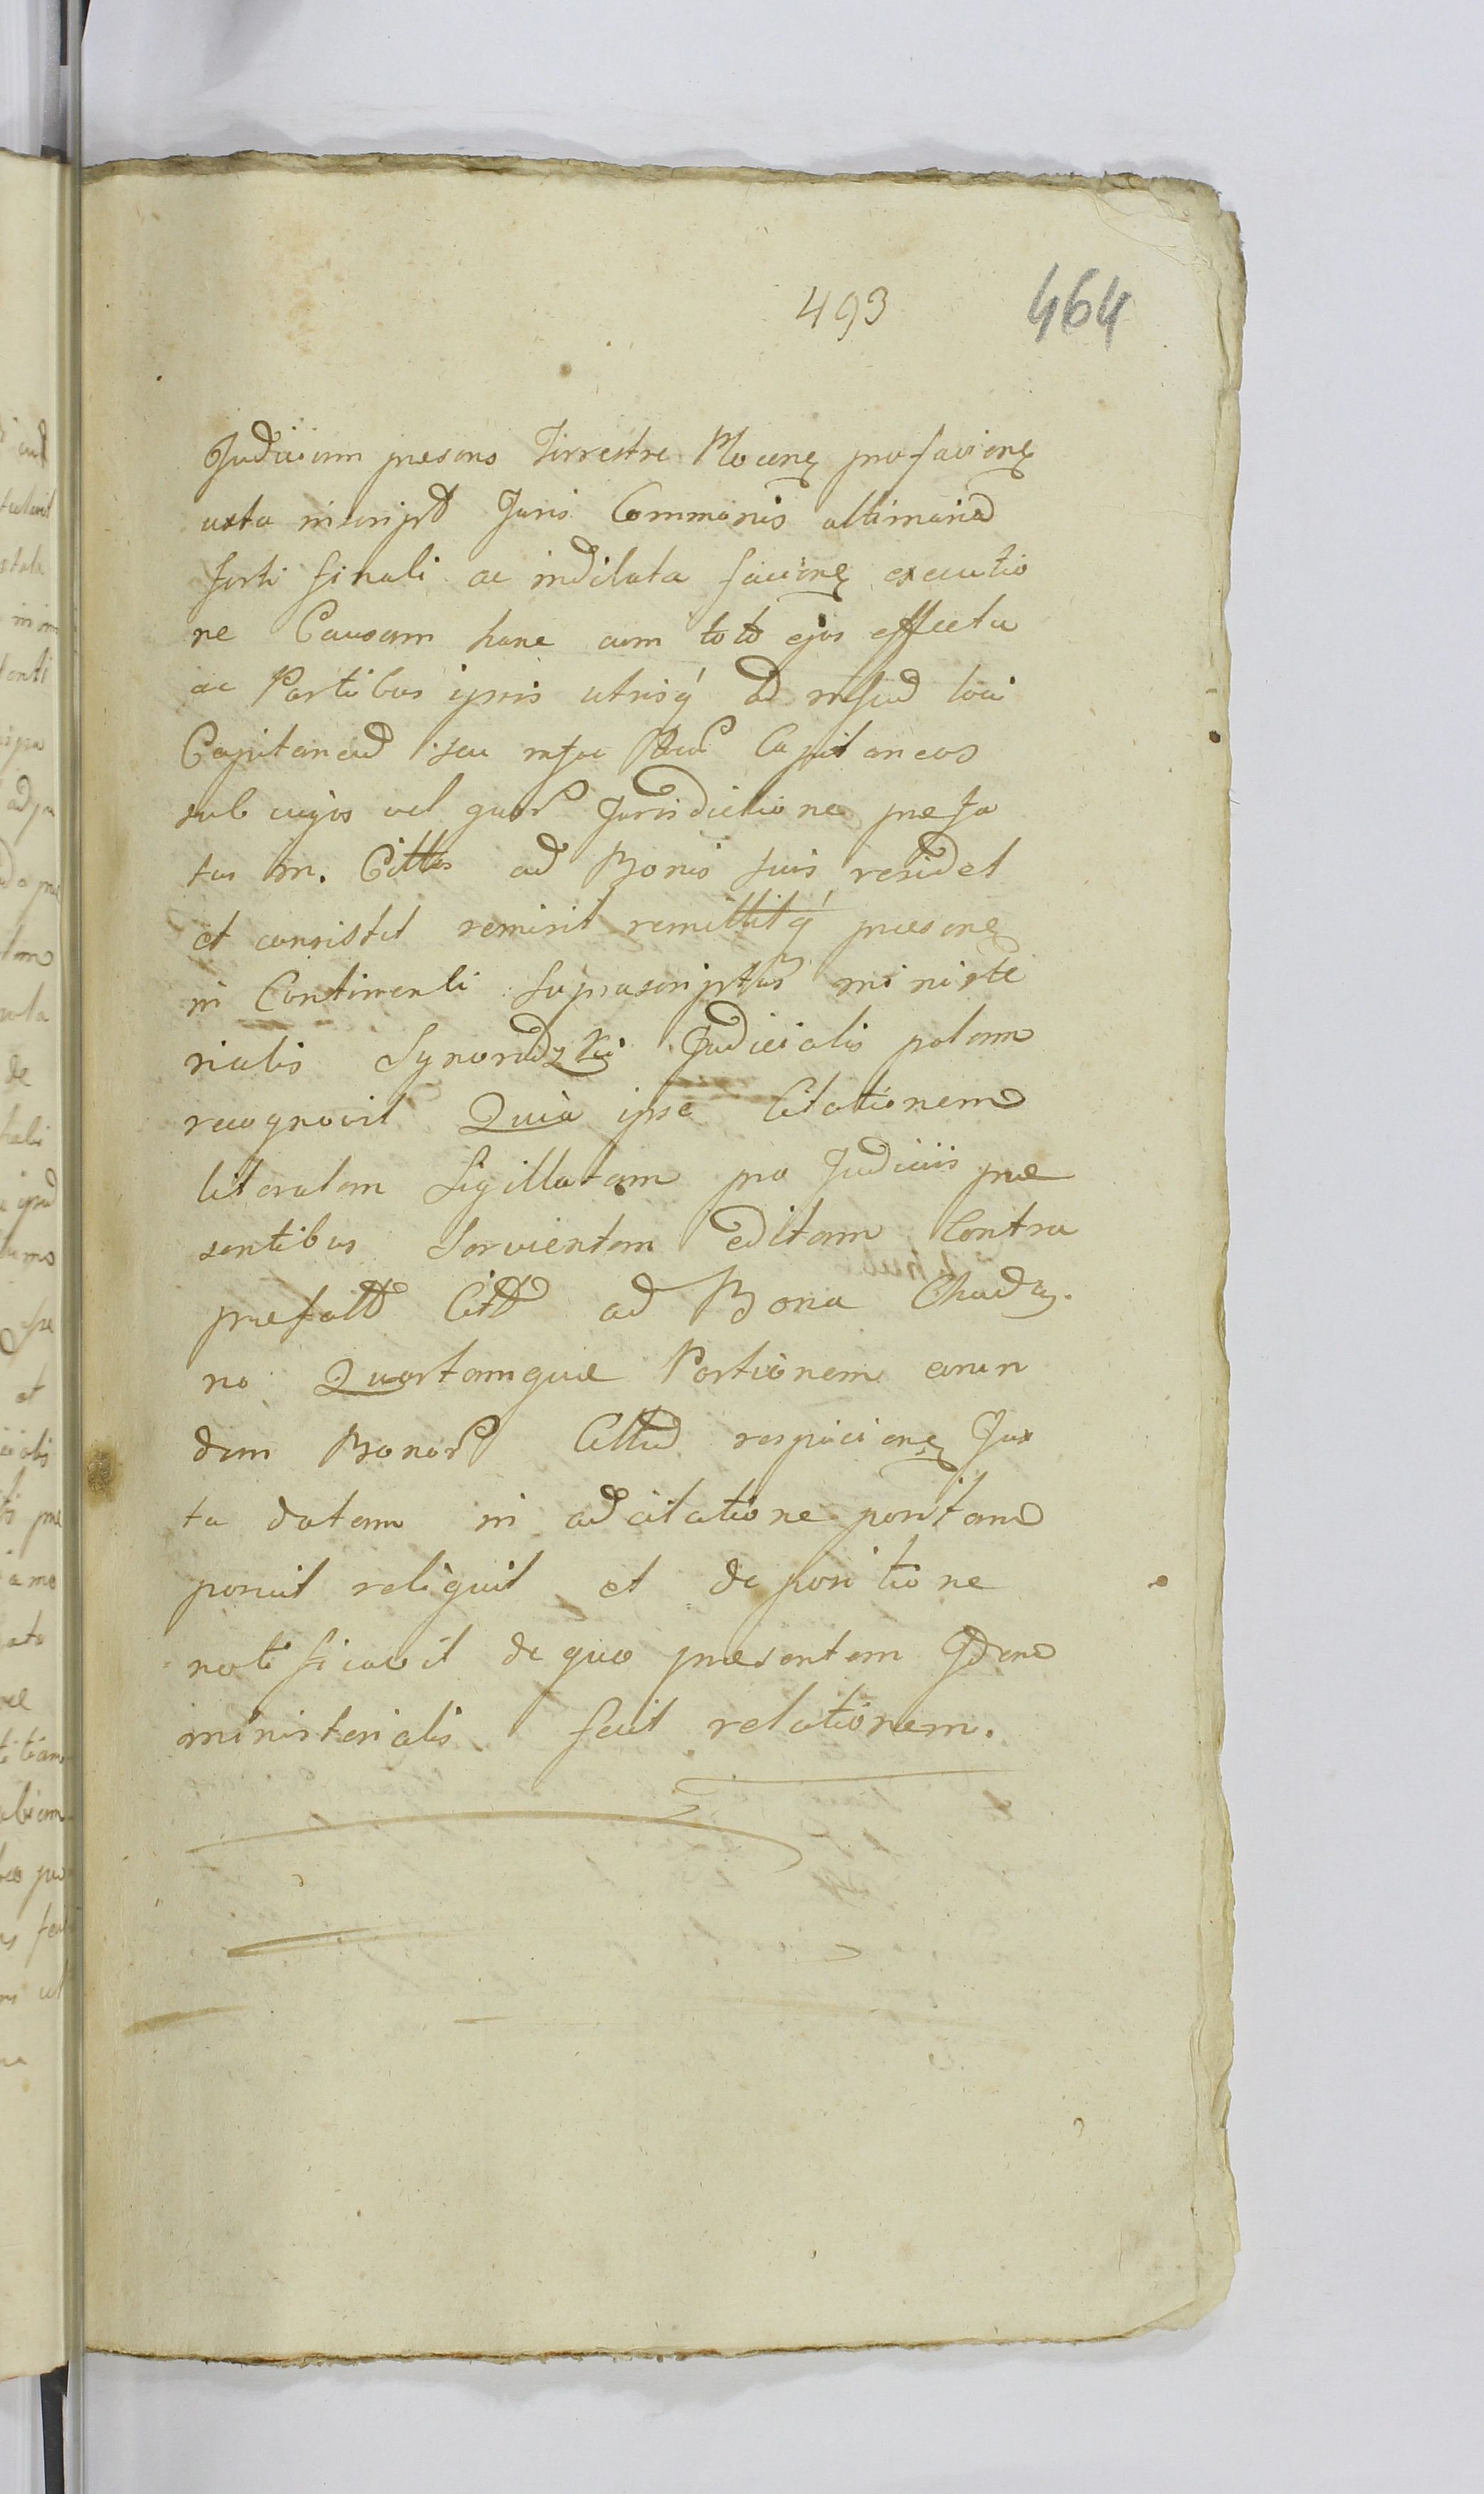 493 464
Judicium presens Terrestre Plocen pro facien
uxta inscript Juris Communis ultimaria
forti finali ac indilata facien executio
ne Causam hanc cum toto ejus effectu
ac Partibus ipsis utrisq ad infud loci
Capitaneud seu infra Capitaneos
sub cujus vel quor Jurisdictione prefa
tus m. Cittus ad Bonis suis residet
et consistit remisit remittitq presens
in Continenti Suprascriptus ministe
rialis Synoradzki Judicialis palam
recognovit Quia ipse Citationem
literalem Sigillatam pro Judiciis prae
sentibus Servientem editam Contra
prefatt Citt ad Bona Chudzy
no Quartamque Portionem eorun
dem Bonor Cittud respicien Jux
ta datam in ad citatione positam
posuit reliquit et de positione
notificavit de quo presentem Idem
ministerialis fecit relationem.